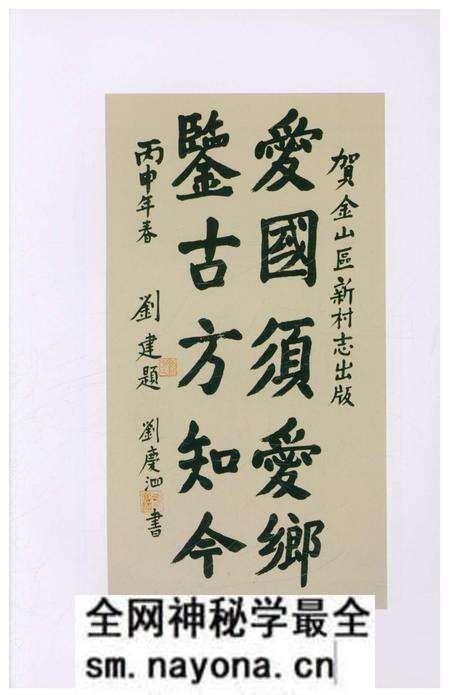 賀金山區新村志出版
愛國須愛鄉
鑒古方知今
丙申年春 劉建題 劉慶泗書
全网神秘学最全
sm.nayona.cn